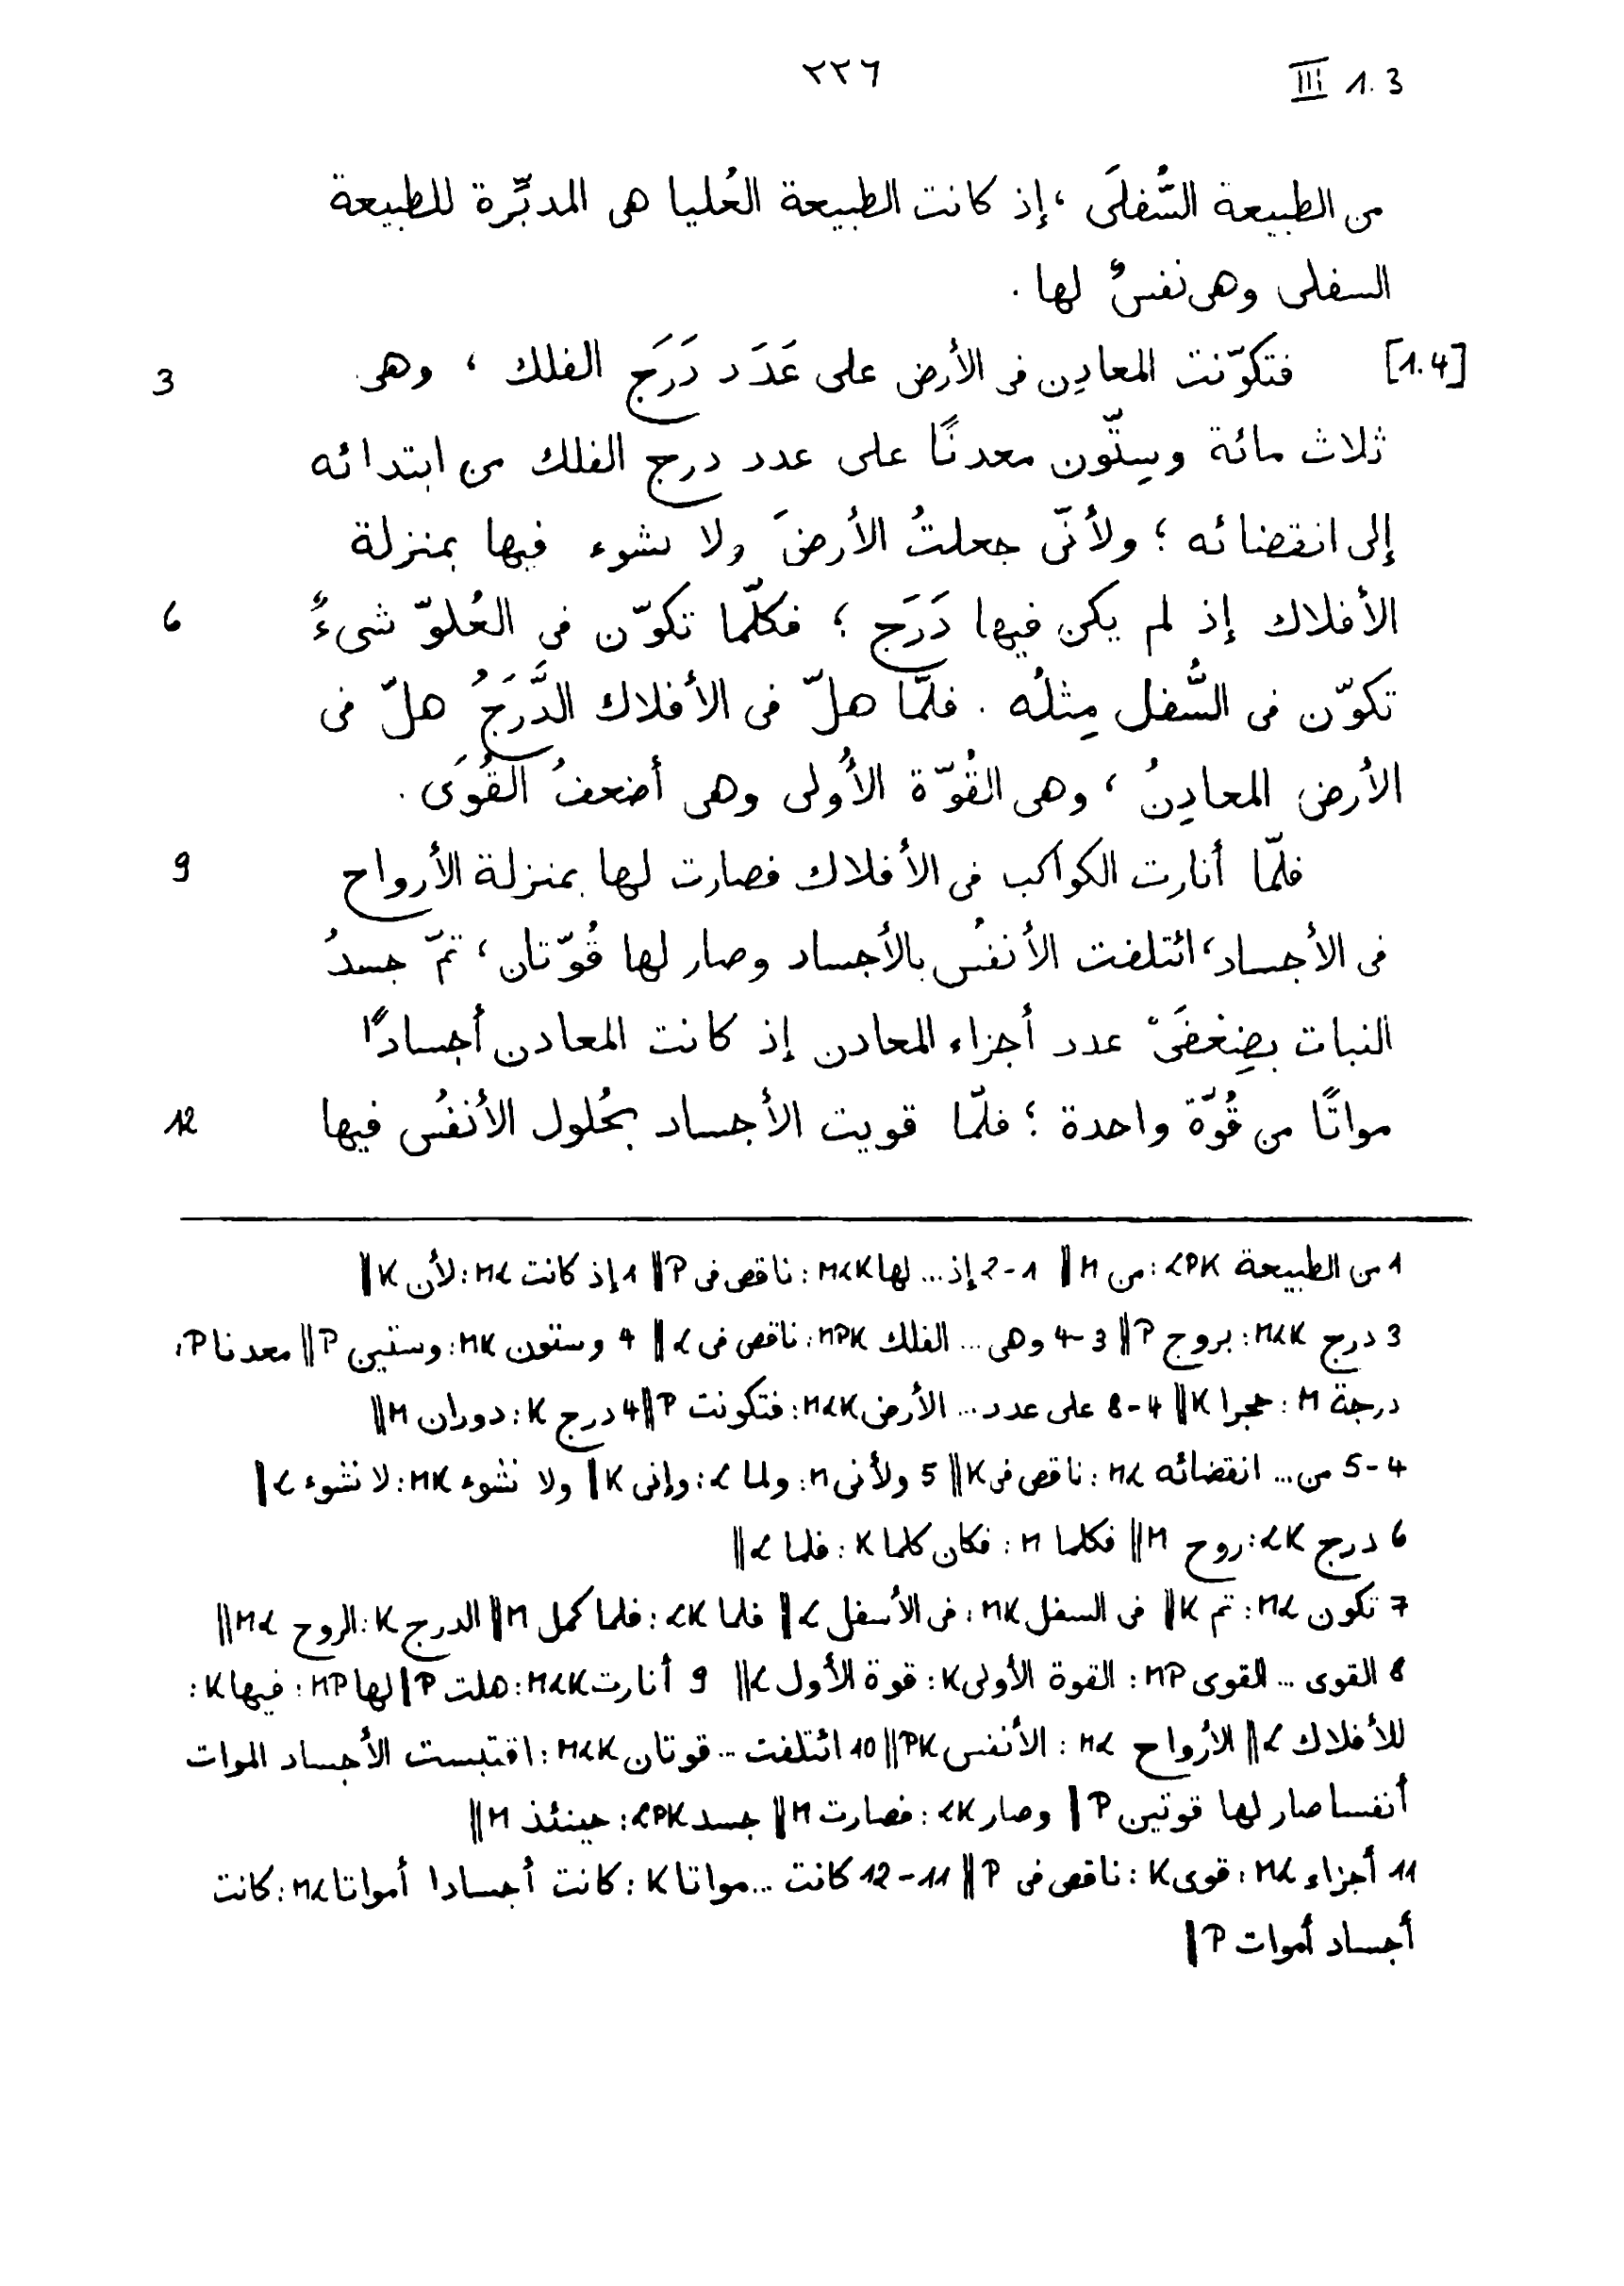 ٢٢٦ III 1.3
من الطبيعة السُّفلَى ، إذ كانت الطبيعة العُليا هى المدبِّرة للطبيعة
السفلى وهى نفسٌ لها .
[1.4] فتكوّنت المعادِن فى الأرض على عَدَد دَرَج الفلك ، وهى 3
ثلاث مائة وسِتّون معدنًا على عدد درج الفلك من ابتدائه
إلى انقضائه ؛ ولأنّى جعلتُ الأرضَ ولا نشوء فيها بمنزلة
الأفلاك إذ لم يكن فيها دَرَج ؛ فكلّما تكوّن فى العُلوّ شىءٌ 6
تكوّن فى السُّفل مِثلُه . فلمّا هلّ فى الأفلاك الدَّرَجُ هلّ فى
الأرض المعادِنُ ، وهى القُوّة الأُولى وهى أضعفُ القُوَى .
فلمّا أنارت الكواكب فى الأفلاك فصارت لها بمنزلة الأرواح 9
فى الأجساد ، ائتلفت الأنفُس بالأجساد وصار لها قُوّتان ، تمّ جسدُ
النبات بضِعْفَىْ عدد أجزاء المعادن إذ كانت المعادن أجسادًا
مواتًا من قُوّة واحدة ؛ فلمّا قويت الأجساد بحُلول الأنفُس فيها 12
1 من الطبيعة LPK : من M ‖ 1-2 إذ ... لها MLK : ناقص فى P ‖ 1 إذ كانت ML : لأن K ‖
3 درج MLK : بروج P ‖ 3-4 وهى ... الفلك MPK : ناقص فى L ‖ 4 وستون MK : وستين P ‖ معدنا P :
درجة M : حجرا K ‖ 4-8 على عدد ... الأرض MLK : فتكونت P ‖ 4 درج K : دوران M ‖
4-5 من ... انقضائه ML : ناقص فى K ‖ 5 ولأنى M : ولما L : وإنى K ‖ ولا نشوء MK : لا نشوء L ‖
6 درج LK : روح M ‖ فكلما M : فكان كلما K : فلما L ‖
7 تكون ML : تم K ‖ فى السفل MK : فى الأسفل L ‖ فلما LK : فلما كمل M ‖ الدرج K : الروح ML ‖
8 القوى ... القوى MP : القوة الأولى K : قوة الأول L ‖ 9 أنارت MLK : هلت P ‖ لها MP : فيها K :
للأفلاك L ‖ الأرواح ML : الأنفس PK ‖ 10 ائتلفت ... قوتان MLK : اقتبست الأجساد الموات
أنفسا صار لها قوتين P ‖ وصار LK : فصارت M ‖ جسد LPK : حينئذ M ‖
11 أجزاء ML : قوى K : ناقص فى P ‖ 11-12 كانت ... مواتا K : كانت أجسادا أمواتا ML : كانت
أجساد أموات P ‖